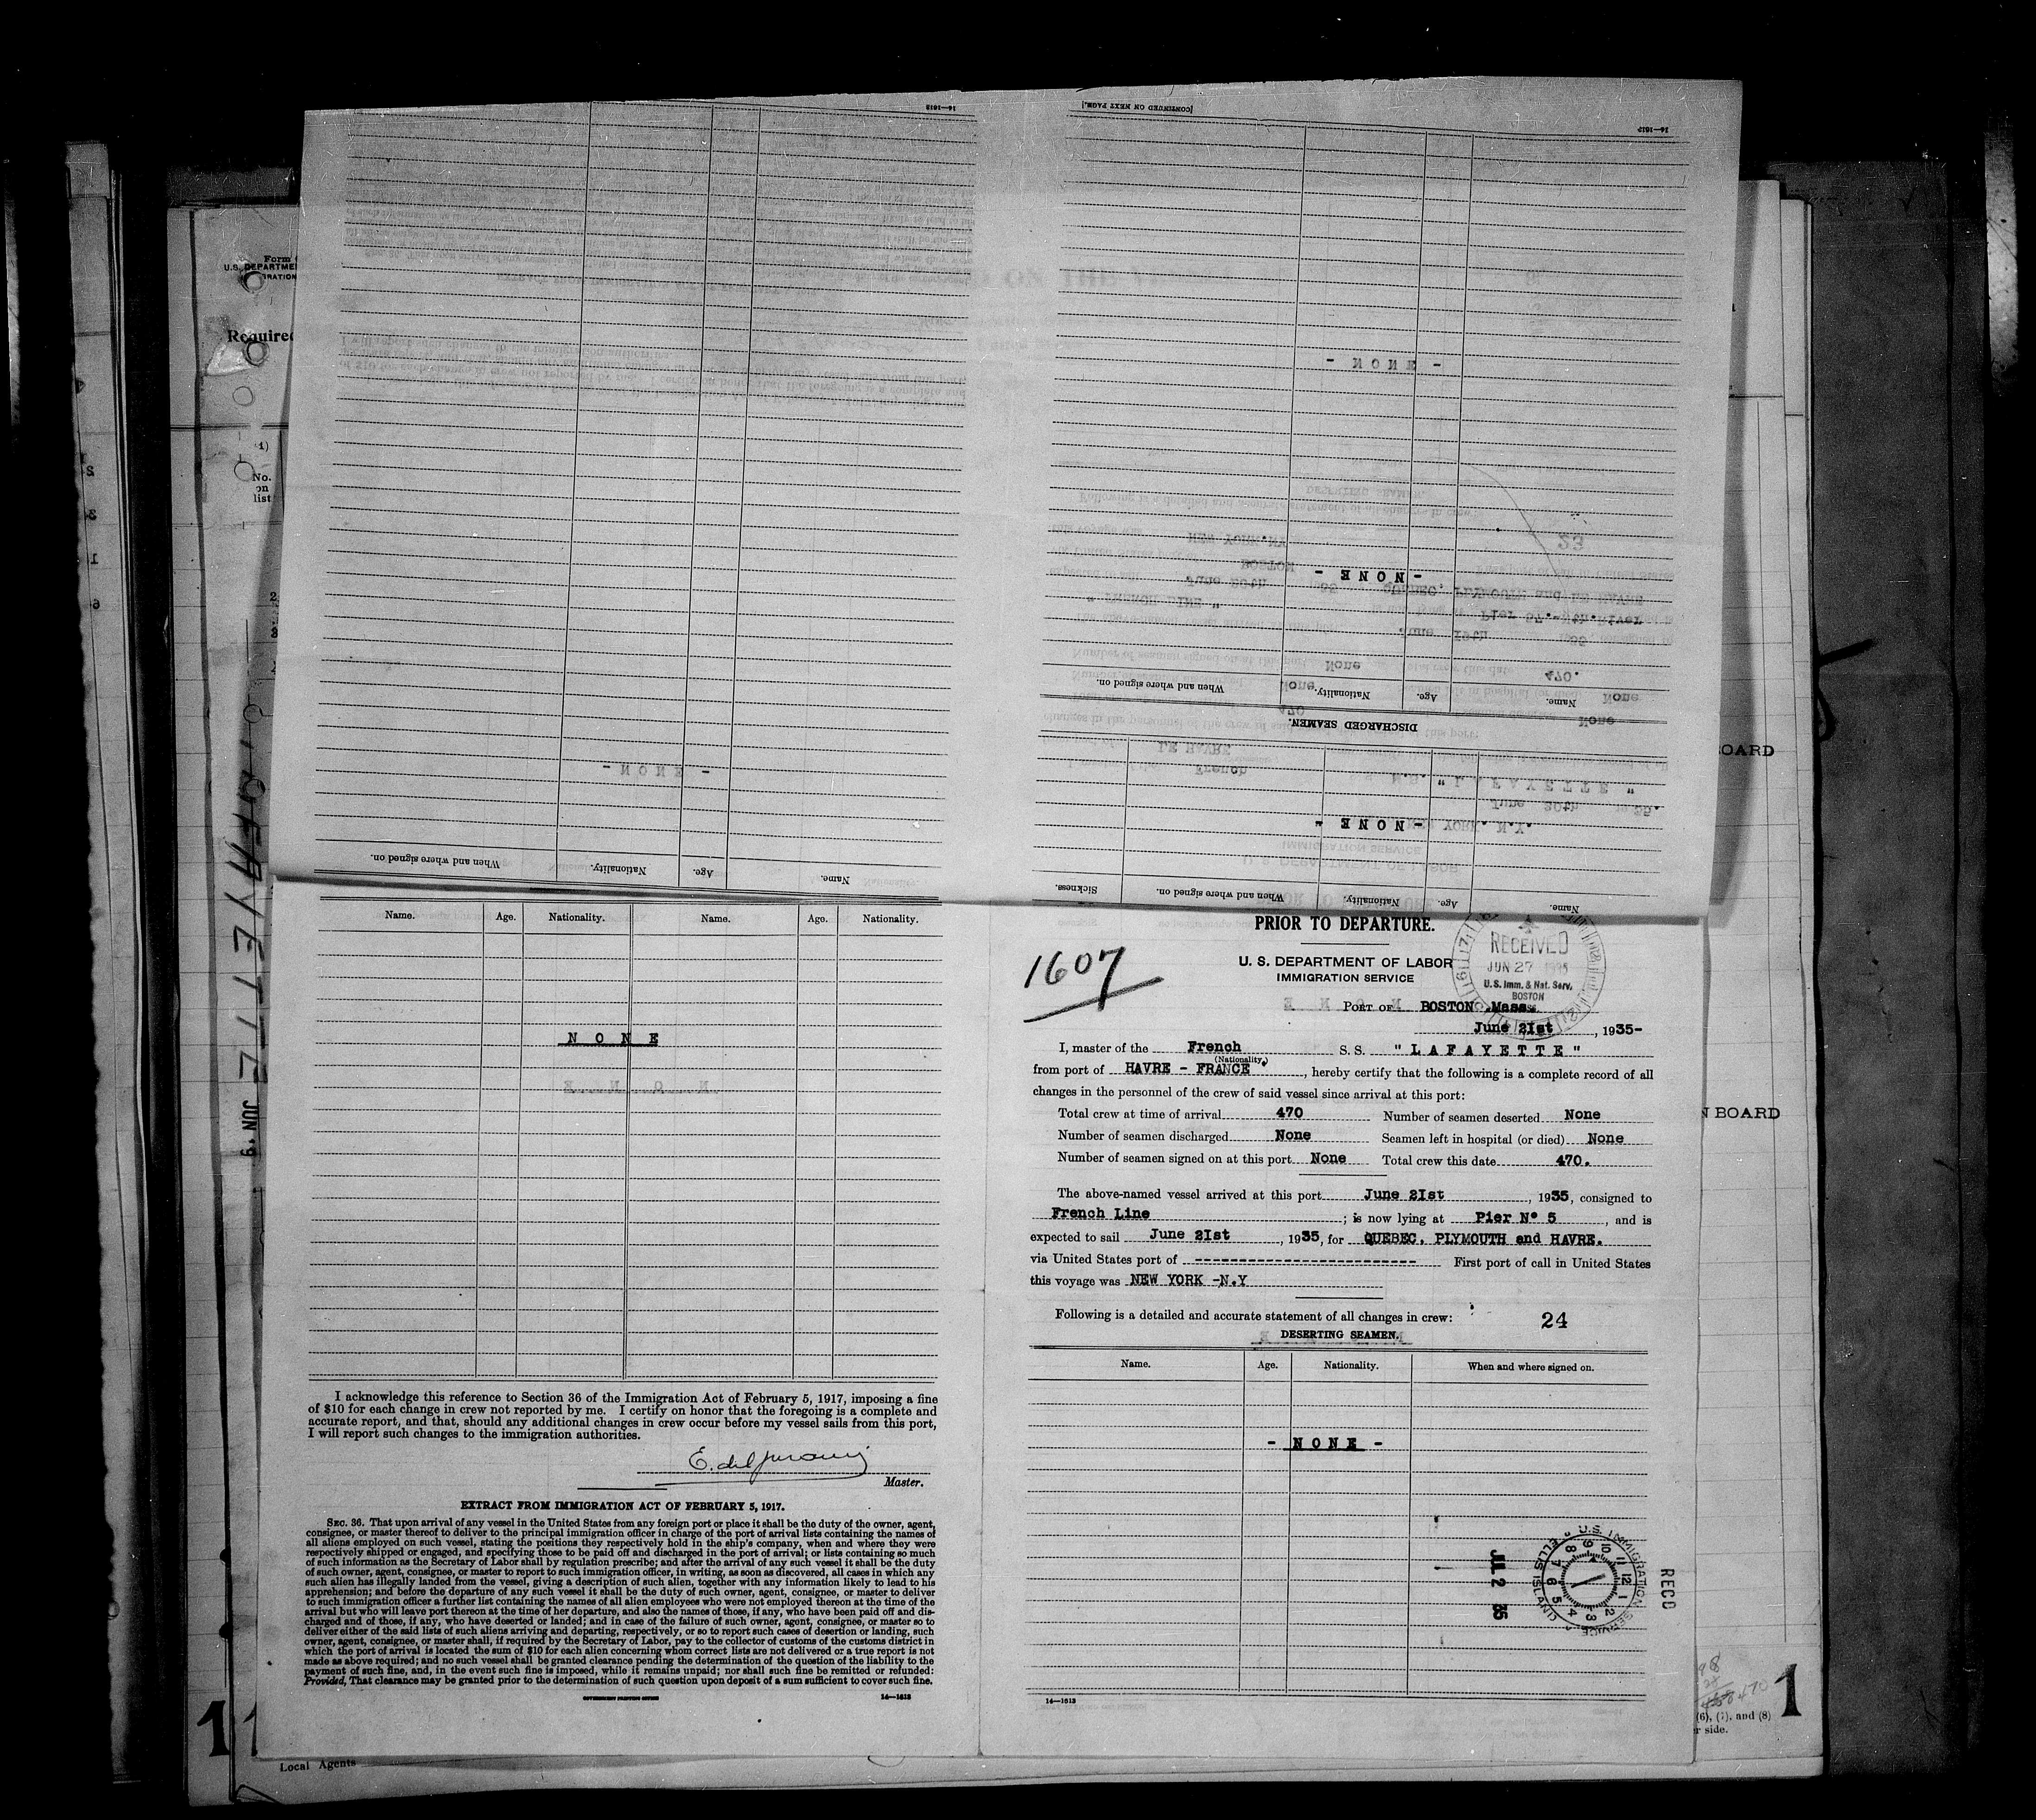 16—1613
[CONTINUED ON NEXT PAGE.]
16—1613
- NONE -
- NONE -
When and where signed on.
Nationality.
Age.
Name.
DISCHARGED SEAMEN.
- NONE -
- NONE -
When and where signed on.
Nationality.
Age.
Name.
Sickness.
When and where signed on.
Nationality.
Age.
Name.
Form
U.S. DEPARTMEN
GRATION
Required
No.
on
list
LAFAYETTE
19 JUN
OARD
N BOARD
Name.
Age.
Nationality.
Name.
Age.
Nationality.
NONE
I acknowledge this reference to Section 36 of the Immigration Act of February 5, 1917, imposing a fine
of $10 for each change in crew not reported by me. I certify on honor that the foregoing is a complete and
accurate report, and that, should any additional changes in crew occur before my vessel sails from this port,
I will report such changes to the immigration authorities.
Master.
EXTRACT FROM IMMIGRATION ACT OF FEBRUARY 5, 1917.
SEC. 36. That upon arrival of any vessel in the United States from any foreign port or place it shall be the duty of the owner, agent,
consignee, or master thereof to deliver to the principal immigration officer in charge of the port of arrival lists containing the names of
all aliens employed on such vessel, stating the positions they respectively hold in the ship's company, when and where they were
respectively shipped or engaged, and specifying those to be paid off and discharged in the port of arrival; or lists containing so much
of such information as the Secretary of Labor shall by regulation prescribe; and after the arrival of any such vessel it shall be the duty
of such owner, agent, consignee, or master to report to such immigration officer, in writing, as soon as discovered, all cases in which any
such alien has illegally landed from the vessel, giving a description of such alien, together with any information likely to lead to his
apprehension; and before the departure of any such vessel it shall be the duty of such owner, agent, consignee, or master to deliver
to such immigration officer a further list containing the names of all alien employees who were not employed thereon at the time of the
arrival but who will leave port thereon at the time of her departure, and also the names of those, if any, who have been paid off and dis-
charged and of those, if any, who have deserted or landed; and in case of the failure of such owner, agent, consignee, or master so to
deliver either of the said lists of such aliens arriving and departing, respectively, or so to report such cases of desertion or landing, such
owner, agent, consignee, or master shall, if required by the Secretary of Labor, pay to the collector of customs of the customs district in
which the port of arrival is located the sum of $10 for each alien concerning whom correct lists are not delivered or a true report is not
made as above required; and no such vessel shall be granted clearance pending the determination of the question of the liability to the
payment of such fine, and, in the event such fine is imposed, while it remains unpaid; nor shall such fine be remitted or refunded:
Provided, That clearance may be granted prior to the determination of such question upon deposit of a sum sufficient to cover such fine.
GOVERNMENT PRINTING OFFICE
14—1613
PRIOR TO DEPARTURE.
1607
U. S. DEPARTMENT OF LABOR
IMMIGRATION SERVICE
RECEIVED
JUN 27 1935
U.S. Imm. & Nat. Serv.
BOSTON
PORT OF BOSTON Mass.
June 21st, 1935-
I, master of the French S. S. " LAFAYETTE "
(Nationality.)
from port of HAVRE - FRANCE, hereby certify that the following is a complete record of all
changes in the personnel of the crew of said vessel since arrival at this port:
Total crew at time of arrival 470 Number of seamen deserted None
Number of seamen discharged None Seamen left in hospital (or died) None
Number of seamen signed on at this port None Total crew this date 470.
The above-named vessel arrived at this port June 2Ist, 1935, consigned to
French Line ; is now lying at Pier N° 5, and is
expected to sail June 2Ist, 1935, for QUEBEC. PLYMOUTH and HAVRE.
via United States port of ------------------------- First port of call in United States
this voyage was NEW YORK -N.Y
Following is a detailed and accurate statement of all changes in crew: 24
DESERTING SEAMEN.
Name.
Age.
Nationality.
When and where signed on.
- NONE -
U.S. IMMIGRATION SERVICE
ELLIS ISLAND
JUL 2 35
REC'D
14—1613
(6), (7), and (8)
r side.
1
1
Local Agents